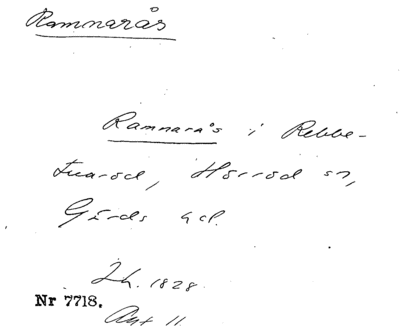 Ramnarås
Ramnarås i Rebbe-
tuaröd, Hörröd sn,
Gärds hd.
Lh. 1828.
Nr 7718.
Akt 11